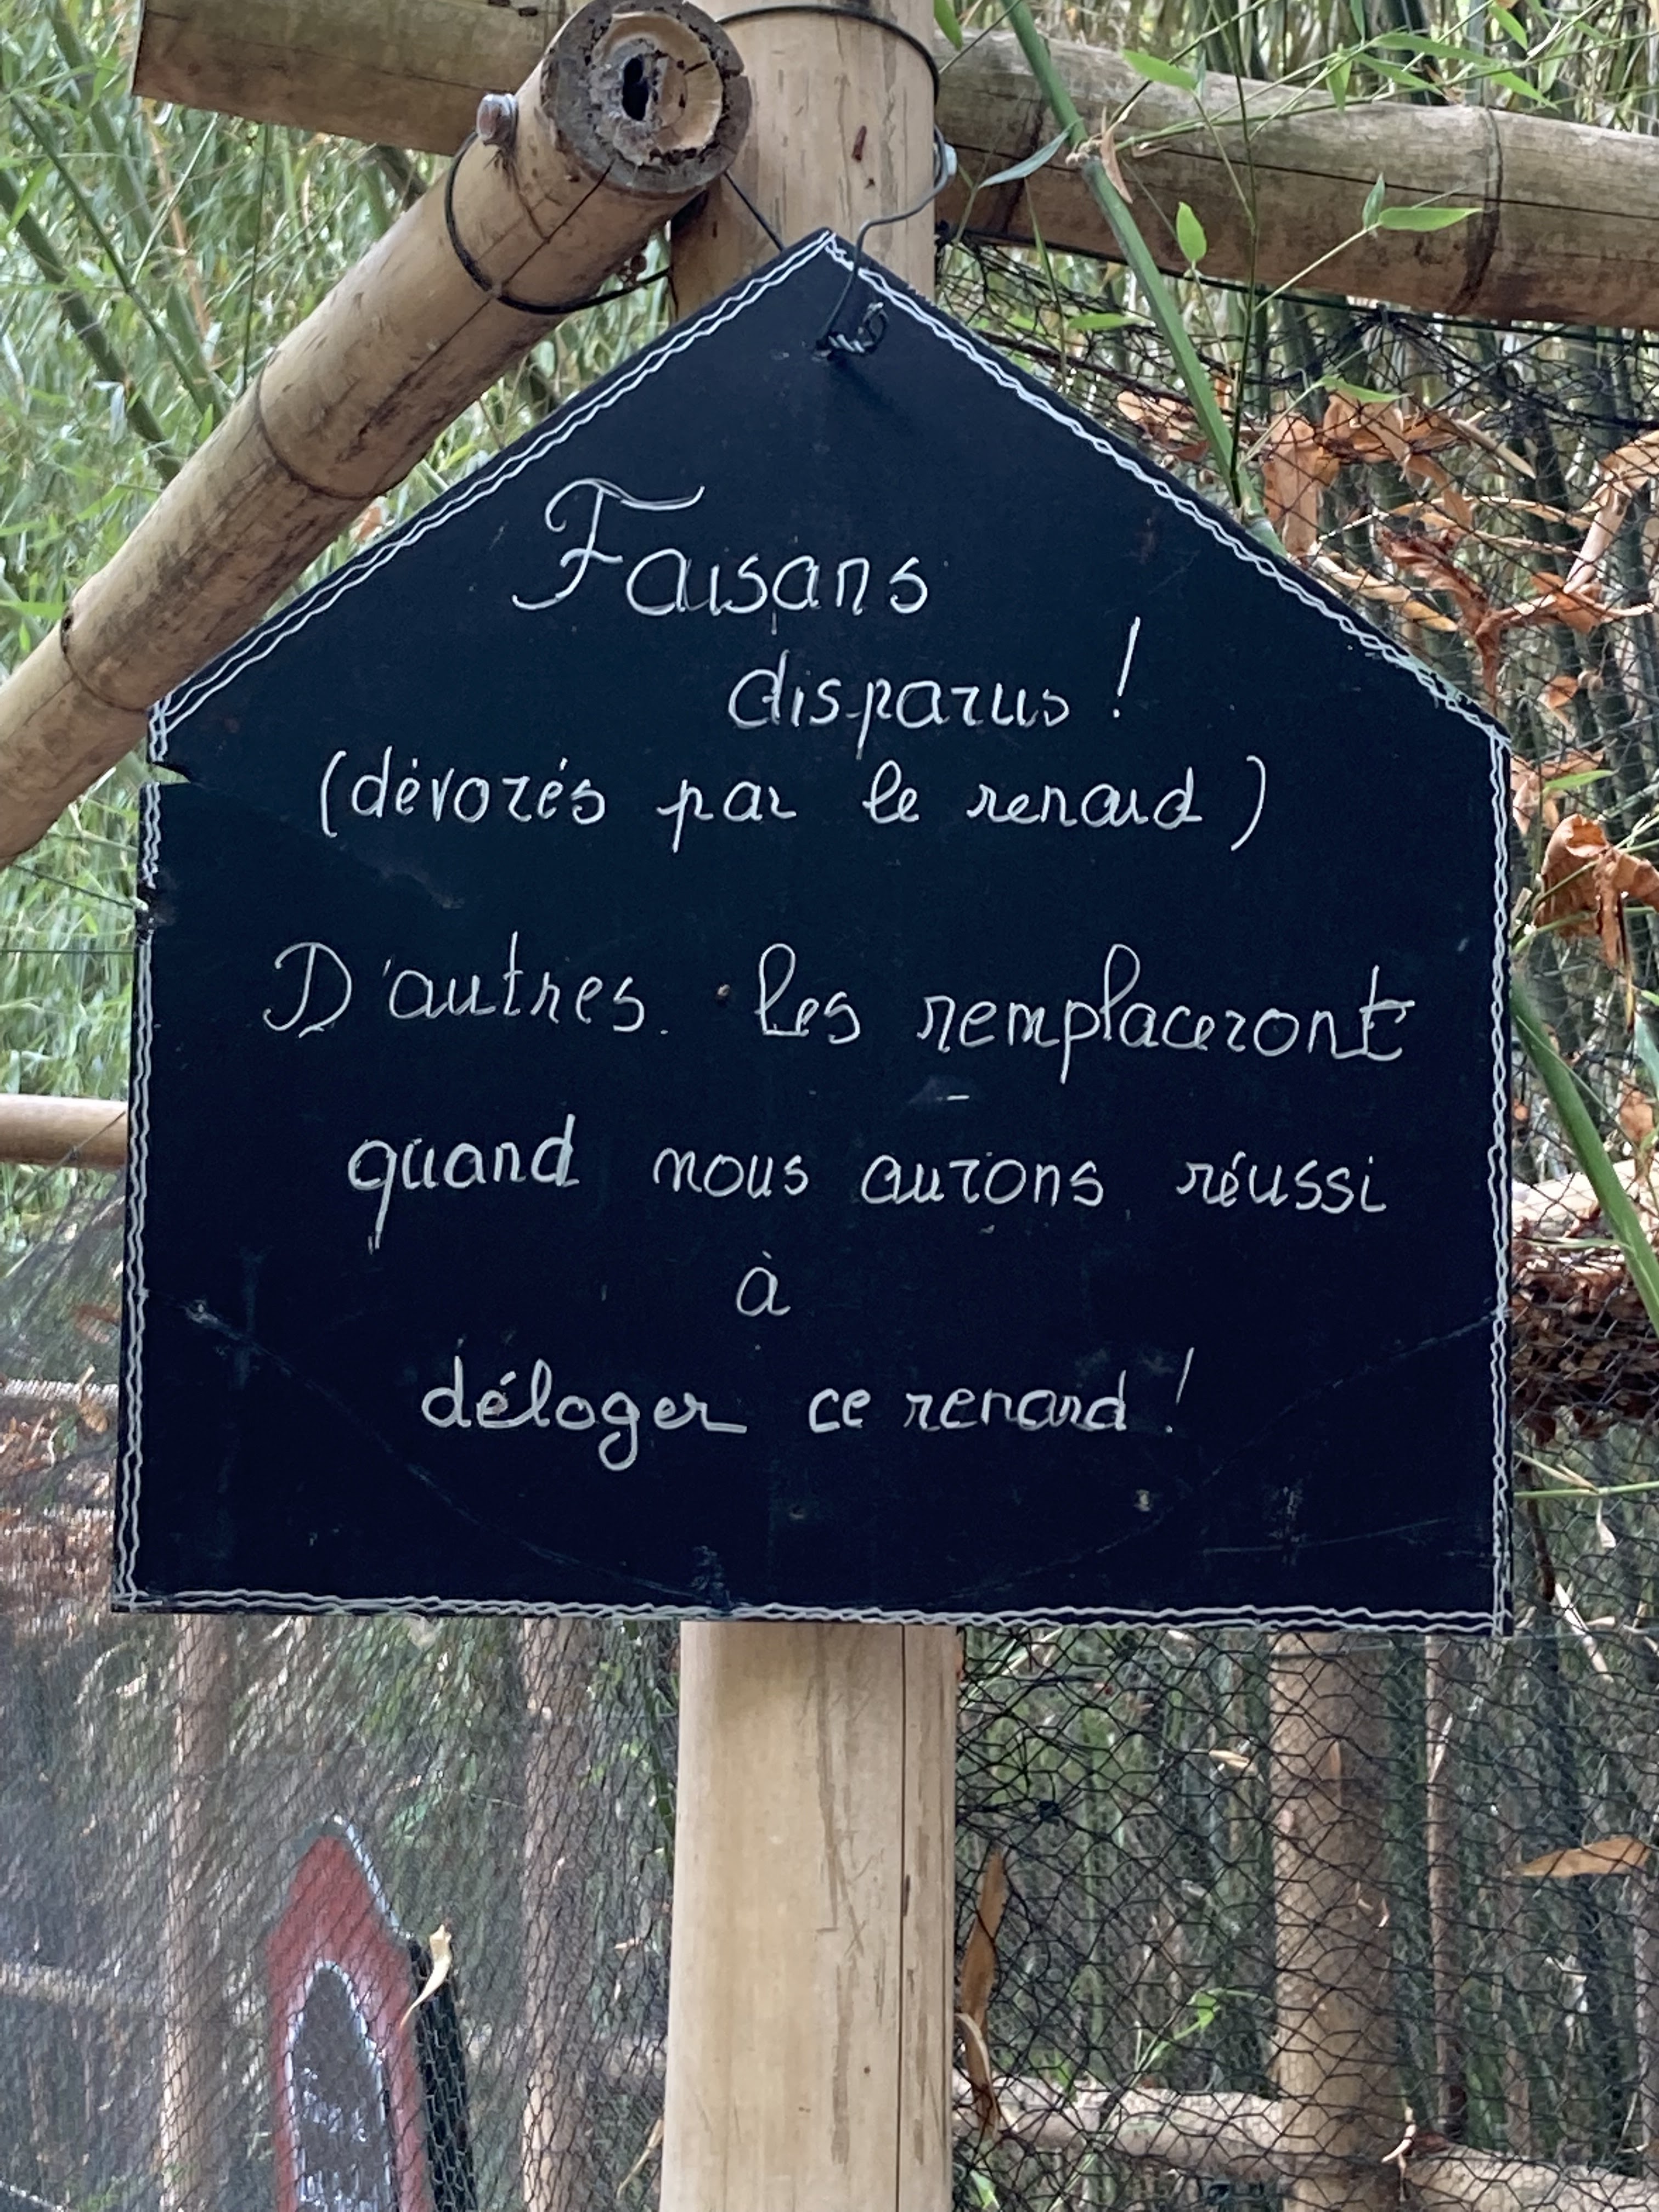 Faisans
disparus !
(dévorés par le renard)
D'autres les remplaceront
quand nous aurons réussi
à
déloger ce renard !